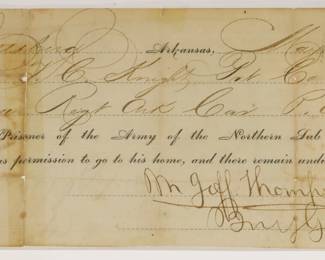 Arkansas, May
C. Knight Pvt Co
Regt Ark Cav
Prisoner of the Army of the Northern Sub
as permission to go to his home, and there remain undis
M Jeff Thomps
Brig G